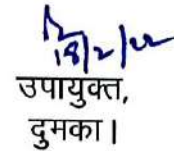 18/2/22
उपायुक्त,
दुमका।